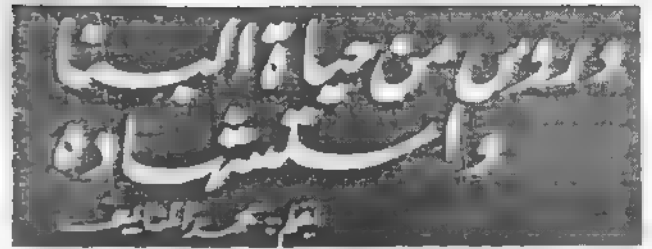 دروس من حياة البنا
واستشهاده